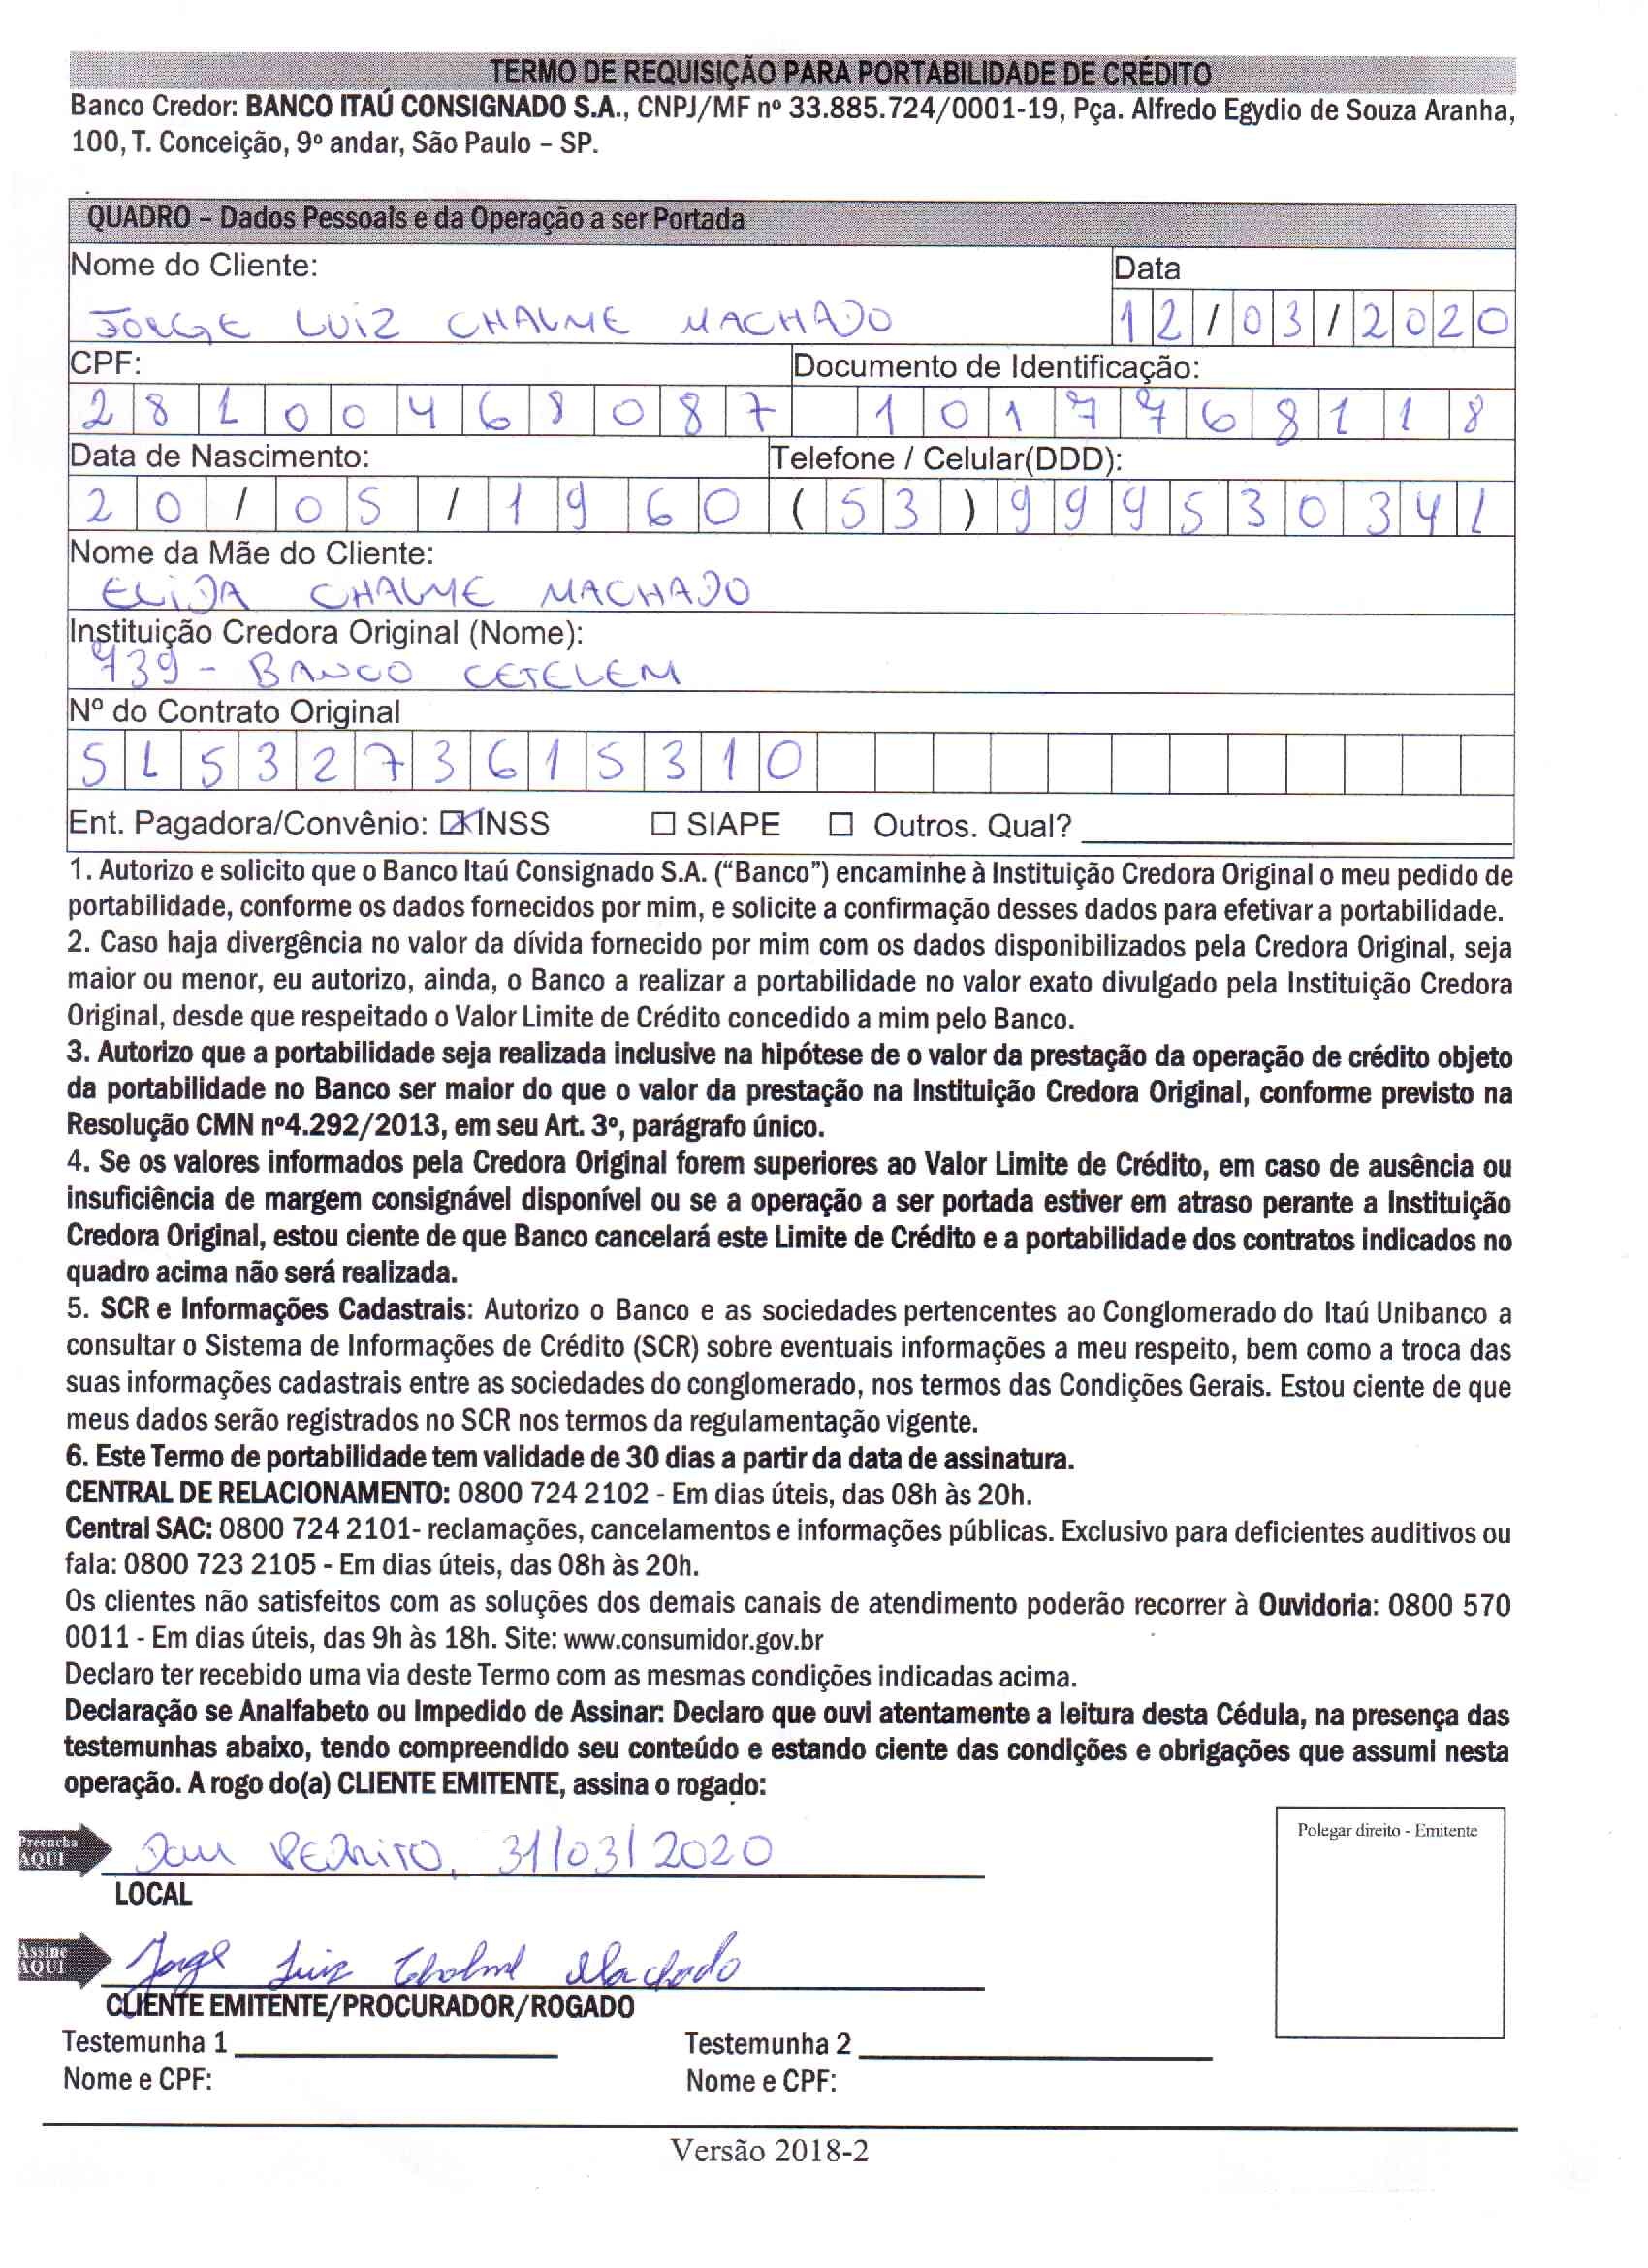 TERMO DE REQUISIÇÃO PARA PORTABILIDADE DE CRÉDITO
Banco Credor: BANCO ITAÚ CONSIGNADO S.A., CNPJ/MF nº 33.885.724/0001-19, Pça. Alfredo Egydio de Souza Aranha,
100, T. Conceição, 9º andar, São Paulo – SP.
QUADRO – Dados Pessoais e da Operação a ser Portada
Nome do Cliente: Data
JORGE LUIZ CHALME MACHADO 12/03/2020
CPF: Documento de Identificação:
28100468087 1017768118
Data de Nascimento: Telefone / Celular(DDD):
20/05/1960 (53)999530341
Nome da Mãe do Cliente:
ELIDA CHALME MACHADO
Instituição Credora Original (Nome):
739 - BANCO CETELEM
Nº do Contrato Original
5153273615310
Ent. Pagadora/Convênio: ☒ INSS ☐ SIAPE ☐ Outros. Qual?
1. Autorizo e solicito que o Banco Itaú Consignado S.A. (“Banco”) encaminhe à Instituição Credora Original o meu pedido de
portabilidade, conforme os dados fornecidos por mim, e solicite a confirmação desses dados para efetivar a portabilidade.
2. Caso haja divergência no valor da dívida fornecido por mim com os dados disponibilizados pela Credora Original, seja
maior ou menor, eu autorizo, ainda, o Banco a realizar a portabilidade no valor exato divulgado pela Instituição Credora
Original, desde que respeitado o Valor Limite de Crédito concedido a mim pelo Banco.
3. Autorizo que a portabilidade seja realizada inclusive na hipótese de o valor da prestação da operação de crédito objeto
da portabilidade no Banco ser maior do que o valor da prestação na Instituição Credora Original, conforme previsto na
Resolução CMN nº4.292/2013, em seu Art. 3º, parágrafo único.
4. Se os valores informados pela Credora Original forem superiores ao Valor Limite de Crédito, em caso de ausência ou
insuficiência de margem consignável disponível ou se a operação a ser portada estiver em atraso perante a Instituição
Credora Original, estou ciente de que Banco cancelará este Limite de Crédito e a portabilidade dos contratos indicados no
quadro acima não será realizada.
5. SCR e Informações Cadastrais: Autorizo o Banco e as sociedades pertencentes ao Conglomerado do Itaú Unibanco a
consultar o Sistema de Informações de Crédito (SCR) sobre eventuais informações a meu respeito, bem como a troca das
suas informações cadastrais entre as sociedades do conglomerado, nos termos das Condições Gerais. Estou ciente de que
meus dados serão registrados no SCR nos termos da regulamentação vigente.
6. Este Termo de portabilidade tem validade de 30 dias a partir da data de assinatura.
CENTRAL DE RELACIONAMENTO: 0800 724 2102 - Em dias úteis, das 08h às 20h.
Central SAC: 0800 724 2101- reclamações, cancelamentos e informações públicas. Exclusivo para deficientes auditivos ou
fala: 0800 723 2105 - Em dias úteis, das 08h às 20h.
Os clientes não satisfeitos com as soluções dos demais canais de atendimento poderão recorrer à Ouvidoria: 0800 570
0011 - Em dias úteis, das 9h às 18h. Site: www.consumidor.gov.br
Declaro ter recebido uma via deste Termo com as mesmas condições indicadas acima.
Declaração se Analfabeto ou Impedido de Assinar: Declaro que ouvi atentamente a leitura desta Cédula, na presença das
testemunhas abaixo, tendo compreendido seu conteúdo e estando ciente das condições e obrigações que assumi nesta
operação. A rogo do(a) CLIENTE EMITENTE, assina o rogado:
Polegar direito - Emitente
Preencha
AQUI
Dom PEDRITO, 31/03/2020
LOCAL
Assine
AQUI
Jorge Luiz Machado
CLIENTE EMITENTE/PROCURADOR/ROGADO
Testemunha 1 Testemunha 2
Nome e CPF: Nome e CPF:
Versão 2018-2